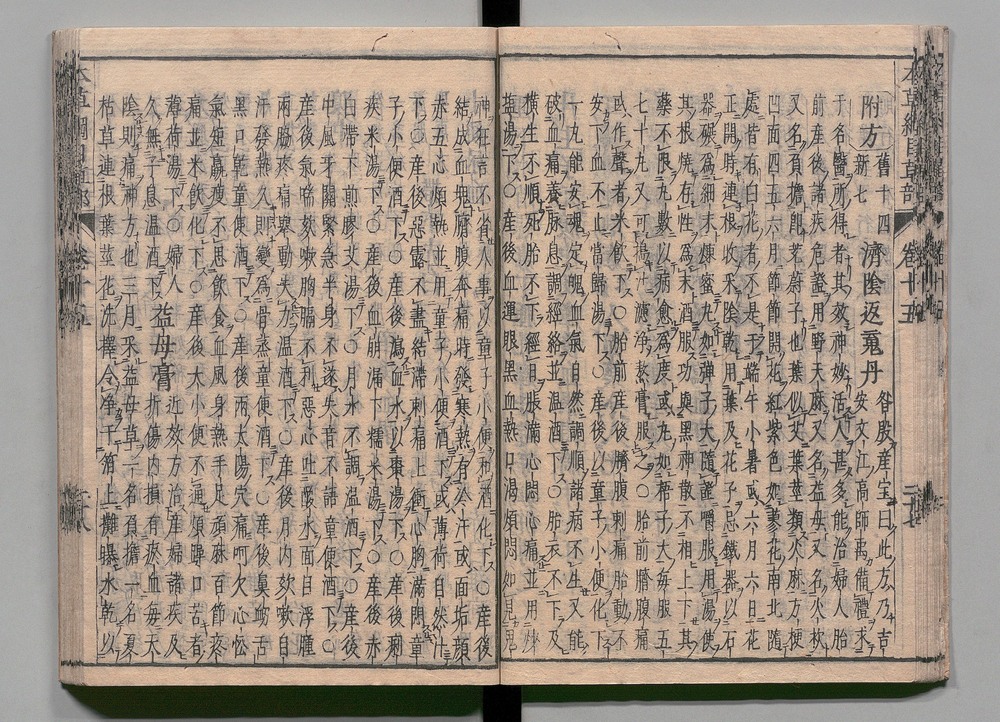 附方 舊十四 新七 濟陰返䰟丹 昝殷産宝曰此方乃吉安文江高師禹備禮求
于名醫所得者其效神妙活人甚多能治婦人胎
前産後諸疾危證用野天麻又名益母又名火枚
又名負擔即茺蔚子也葉似艾葉莖類火麻方梗
凹面四五六月節節開花紅紫色如蓼花南北隨
處皆有白花者不是于端午小暑或六月六日花
正開時連根收采陰乾用葉及花子忌鐵器以石
器碾爲細末煉蜜丸如彈子大隨證嚼服用湯使
其根燒存性爲末酒服功與黑神散不相上下其
藥不限丸數以病愈爲度或丸如梧子大每服五
七十丸又可擣汁濾净熬膏服之〇胎前臍腹痛
或作聲者米飲下〇胎前産後臍腹刺痛胎動不
安下血不止當歸湯下〇産後以童子小便化下
一丸能安魂定魄血氣自然調順諸病不生又能
破血痛養脉息調經絡並温酒下〇胎衣不下及
横生不順死胎不下經日脹滿心悶心痛並用炒
鹽湯下〇産後血運眼黑血熱口渴煩悶如見鬼
神狂言不省人事以童子小便和酒化下〇産後
結成血塊臍腹奔痛時發寒熱有冷汗或面垢顔
赤五心煩熱並用童子小便酒下或薄荷自然汁
下〇産後惡露不盡結滯刺痛上衝心胸滿悶童
子小便酒下〇産後瀉血水以棗湯下〇産後痢
疾米湯下〇産後血崩漏下糯米湯下〇産後赤
白帶下煎膠艾湯下〇月水不調温酒下〇産後
中風牙關緊急半身不遂失音不語童便酒下〇
産後氣喘欬嗽胸膈不利惡心吐酸水面目浮腫
兩脇疼痛舉動失力温酒下〇産後月内欬嗽自
汗發熱久則變爲骨蒸童便酒下〇産後鼻衄舌
黑口乾童便酒下〇産後兩太陽穴痛呵欠心忪
氣短羸瘦不思飲食血風身熱手足頑麻百節疼
痛並米飲化下〇産後大小便不通煩躁口苦者
薄荷湯下〇婦人久無子息温酒下 益母膏 近效方治産婦諸疾及折傷内損有瘀血每天
陰則痛神方也三月采益母草一名負擔一名夏
枯草連根葉莖花洗擇令净于箔上攤暴水乾以